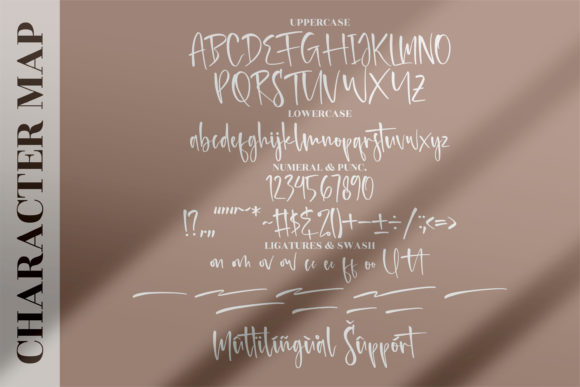 CHARACTER MAP
UPPERCASE
ABCDEFGHIJKLMNO
PQRSTUVWXYZ
LOWERCASE
abcdefghijklmnopqrstuvwxyz
NUMERAL & PUNC.
1234567890
LIGATURES & SWASH
on oh ov ow cc ee ff oo
Múltílíñgùál Šûppórt